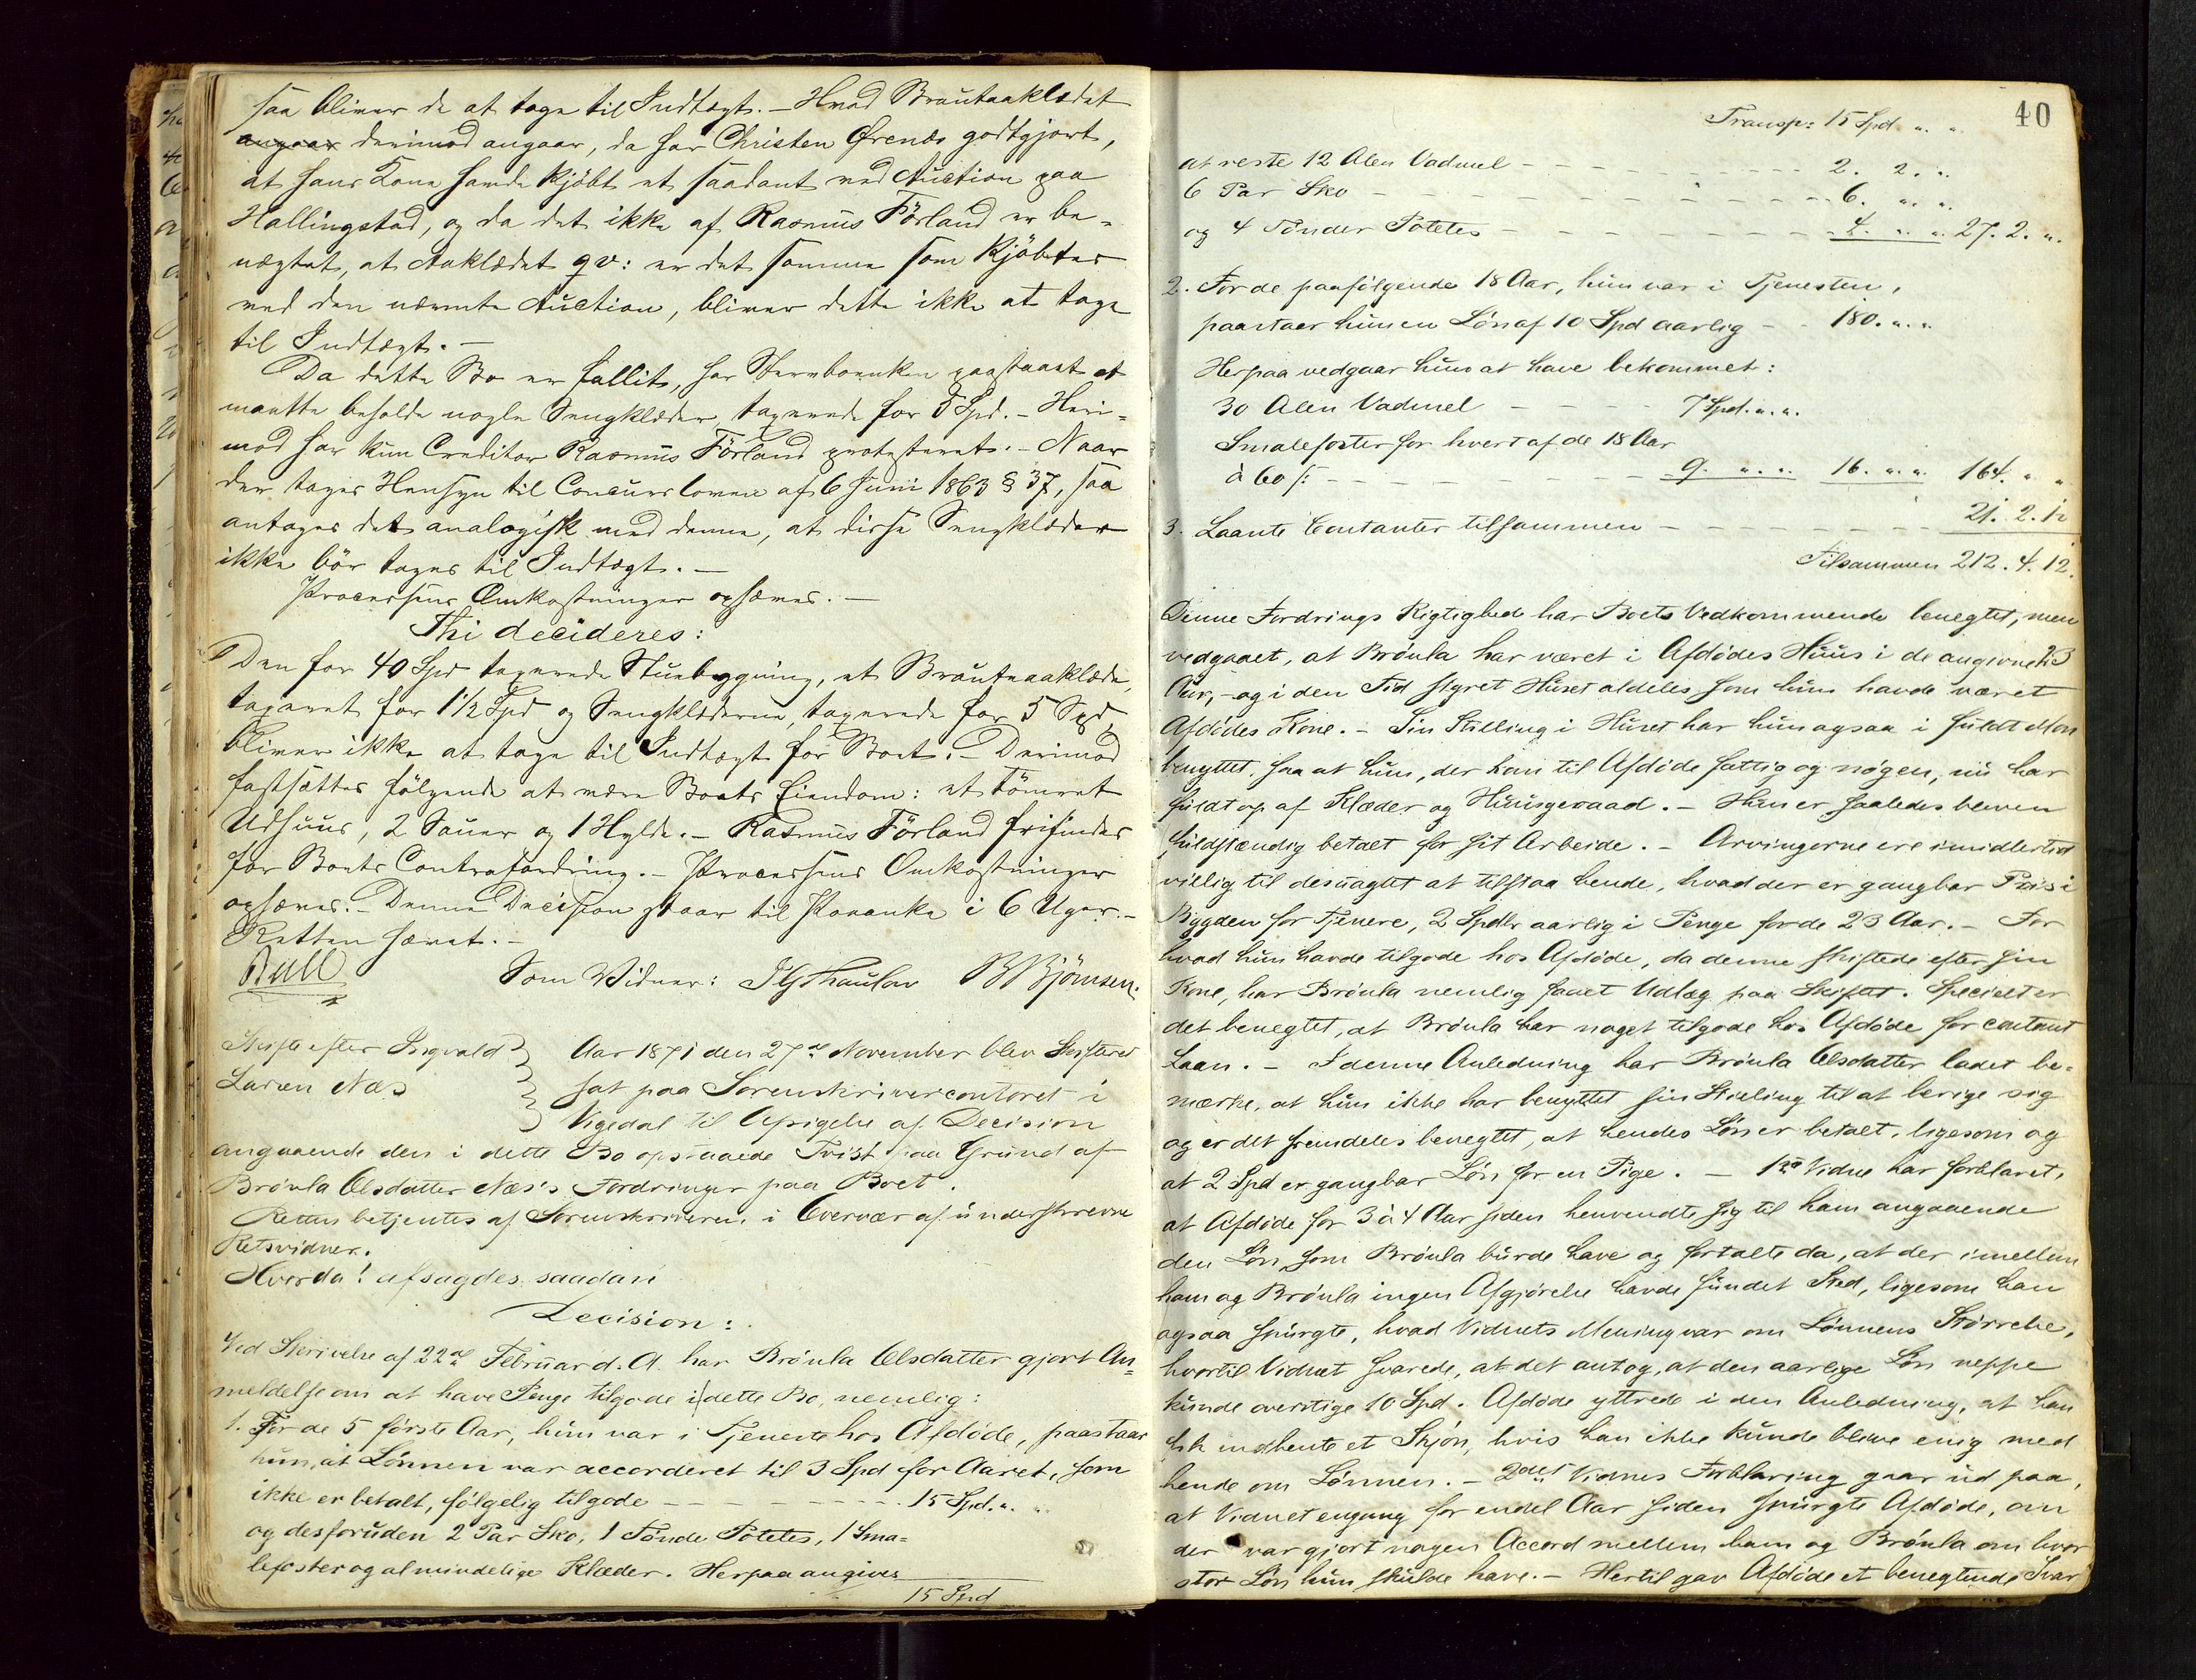 saa bliver de at tage til Indtægt. – Hvad Brautaaklædet
angaar derimod angaar, da har Christen Örenes godtgjort,
at hans Kone havde kjöbt et saadant ved Auction paa
Hallingstad, og da det ikke af Rasmus Förland er be-
nægtet, at Aaklædet qv: er det samme som kjöbtes
ved den nævnte Auction, bliver dette ikke at tage
til Indtægt. –
Da dette Bo er fallit, har Stervboenken paastaaet at
maatte beholde nogle Sengklæder, taxerede for 5 Spd. – Heri-
mod har kun Creditor Rasmus Förland protesteret. – Naar
der tages Hensyn til Concursloven af 6 Juni 1863 § 37, saa
antages det analogisk med denne, at disse Sengklæder
ikke bör tages til Indtægt. –
Processens Omkostninger ophæves. –
Thi decideres:
Den for 40 Spd taxerede Stuebygning, et Brautaaklæde,
taxeret for 1½ Spd og Sengklæderne, taxerede for 5 Spd,
bliver ikke at tage til Indtægt for Boet. – Derimod
fastsættes fölgende at være Boets Eiendom: et tömret
Udhuus, 2 Sauer og 1 Hylde. – Rasmus Förland frifindes
for Boets Contrafordring. – Processens Omkostninger
ophæves. – Denne Decision staar til Paaanke i 6 Uger. –
Retten hævet. –
Bull
Som Vidner: I G Thaulow B Björnsen.
Skifte efter Ingvald
Larsen Næs
Aar 1871 den 27de November blev Skifteret
sat paa Sorenskrivercontoret i
Vigedal til Afsigelse af Decision
angaaende den i dette Bo opstaaede Tvist paa Grund af
Brönla Olsdatter Næs's Fordringer paa Boet.
Retten betjentes af Sorenskriveren i Overvær af underskrevne
Retsvidner.
Hvorda! afsagdes saadan
Decision:
Ved Skrivelse af 22de Februar d. A. har Brönla Olsdatter gjort An-
meldelse om at have Penge tilgode i dette Bo, nemlig:
1. For de 5 förste Aar, hun var i Tjeneste hos Afdöde, paastaar
hun, at Lönnen var accorderet til 3 Spd for Aaret, som
ikke er betalt, fölgelig tilgode – – – – – – – – 15 Spd. " "
og desforuden 2 Par Sko, 1 Tönde Potetes, 1 Sma-
lefoster og almindelige Klæder. Herpaa angives
15 Spd
40
Transp: 15 Spd. " "
at reste 12 Alen Vadmel – – – – – – – – – 2. 2. "
6 Par Sko – – – – – – – – – – 6. " "
og 4 Tönder Potetes – – – – – – – – 4. " " 27. 2. "
2. For de paafölgende 18 Aar, hun var i Tjenesten,
paastaar hun en Lön af 10 Spd aarlig – – 180. " "
Herpaa vedgaar hun at have bekommet:
30 Alen Vadmel – – – – 7 Spd. " "
Smalefoster for hvert af de 18 Aar
à 60 s: – – – – – – 9. " " 16. " " 164. " "
3. Laante Contanter tilsammen – – – – – – 21. 2. 12
Tilsammen 212. 4. 12.
Denne Fordrings Rigtighed har Boets Vedkommende benegtet, men
vedgaaet, at Brönla har været i Afdödes Huus i de angivne 23
Aar, – og i den Tid styret Huset aldeles som hun havde været
Afdödes Kone. – Sin Stilling i Huset har hun ogsaa i fuldt Mon
benyttet, saa at hun, der kom til Afdöde fattig og nögen, nu har
fuldt op af Klæder og Huusgeraad. – Hun er saaledes bleven
fuldstændig betalt for sit Arbeide. – Arvingerne ere imidlertid
villig til desuagtet at tilstaa hende, hvad der er gangbar Priis i
Bygden for Tjenere, 2 Spdlr aarlig i Penge for de 23 Aar. – For
hvad hun havde tilgode hos Afdöde, da denne skiftede efter sin
Kone, har Brönla nemlig faaet Udlæg paa Skiftet. Specielt er
det benegtet, at Brönla har noget tilgode hos Afdöde for contant
Laan. – I denne Anledning har Brönla Olsdatter ladet be-
mærke, at hun ikke har benyttet sin Stilling til at berige sig
og er det fremdeles benegtet, at hendes Lön er betalt, ligesom og
at 2 Spd er gangbar Lön for en Pige. – 1ste Vidne har forklaret,
at Afdöde for 3 à 4 Aar siden henvendte sig til ham angaaende
den Lön, som Brönla burde have og fortalte da, at der imellem
ham og Brönla ingen Afgjörelse havde fundet Sted, ligesom han
ogsaa spurgte, hvad Vidnets Mening var om Lönnens Störrelse,
hvortil Vidnet svarede, at det antog, at den aarlige Lön neppe
kunde overstige 10 Spd. Afdöde yttrede i den Anledning, at han
fik indhente et Skjön, hvis han ikke kunde blive enig med
hende om Lönnen. – 2det Vidnes Forklaring gaar ud paa,
at Vidnet engang for endel Aar siden spurgte Afdöde, om
der var gjort nogen Accord mellem ham og Brönla om hvor
stor Lön hun skulde have. – Hertil gav Afdöde et benegtende Svar